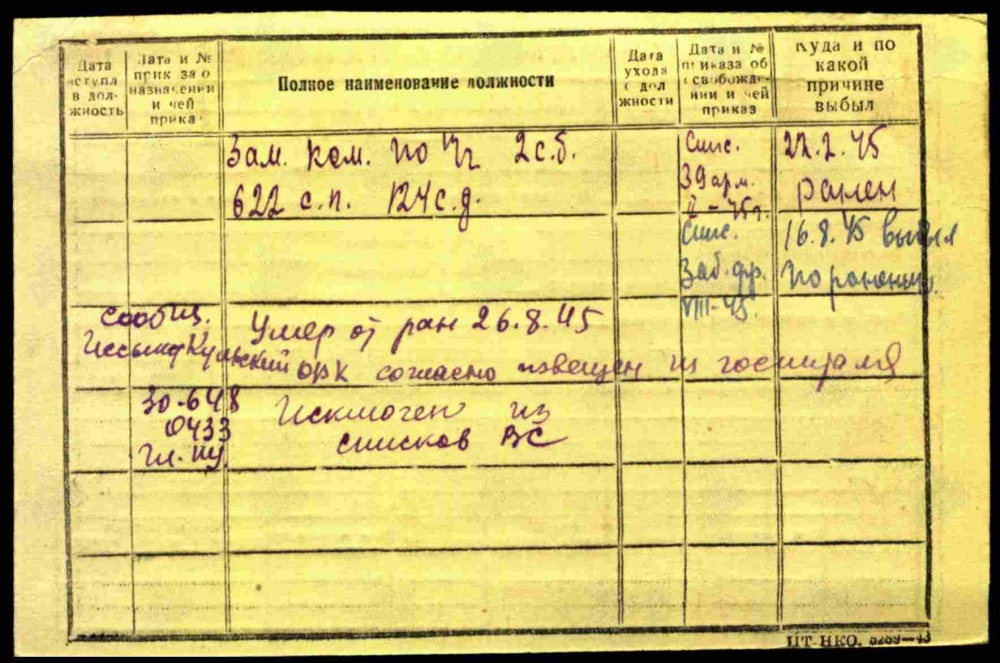 Дата вступл в дол-жность
Дата и № приказа о назначении и чей приказ
Полное наименование должности
Дата ухода с должности
Дата и № приказа об освобожде-нии и чей приказ
Куда и по какой причине выбыл
Зам. ком. по п/ч 2 с.б.
622 с.п. 124 с.д.
Спис.
39 арм.
I-45г.
22.2.45
ранен
Спис.
Заб. фр.
VIII-45.
16.8.45 выбыл
по ранению.
сообщ.
Умер от ран 26.8.45
Иссыккульский ОВК согласно извещен из госпиталя
30-6-48
0433
Гл. пу.
Исключен из
списков ВС
ЦТ НКО. 5259—43